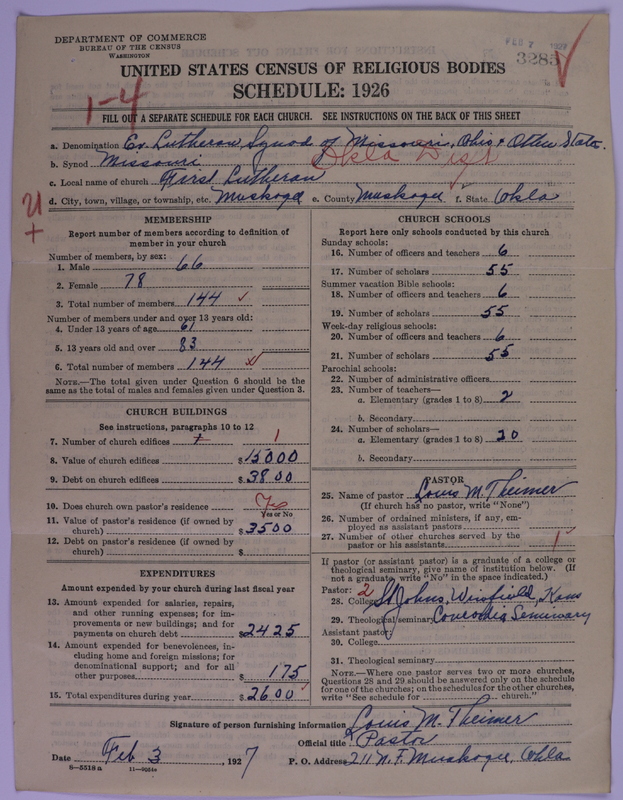 DEPARTMENT OF COMMERCE
BUREAU OF THE CENSUS
WASHINGTON
FEB 7 1927
3285
UNITED STATES CENSUS OF RELIGIOUS BODIES
SCHEDULE: 1926
1-4
FILL OUT A SEPARATE SCHEDULE FOR EACH CHURCH. SEE INSTRUCTIONS ON THE BACK OF THIS SHEET
a. Denomination Ev. Lutheran Synod of Missouri, Ohio & Other States.
b. Synod Missouri Okla Dist
c. Local name of church First Lutheran
d. City, town, village, or township, etc. Muskogee e. County Muskogee f. State Okla
MEMBERSHIP
Report number of members according to definition of
member in your church
Number of members, by sex:
1. Male 66
2. Female 78
3. Total number of members 144 ✓
Number of members under and over 13 years old:
4. Under 13 years of age 61
5. 13 years old and over 83
6. Total number of members 144
NOTE.—The total given under Question 6 should be
same as the total of males and females given under Question 3.
CHURCH BUILDINGS
See instructions, paragraphs 10 to 12
7. Number of church edifices 1
8. Value of church edifices $15000
9. Debt on church edifices $3800
10. Does church own pastor's residence Yes
Yes or No
11. Value of pastor's residence (if owned by
church) $3500
12. Debt on pastor's residence (if owned by
church) $
EXPENDITURES
Amount expended by your church during last fiscal year
13. Amount expended for salaries, repairs,
and other running expenses; for im-
provements or new buildings; and for
payments on church debt $2425
14. Amount expended for benevolences, in-
cluding home and foreign missions; for
denominational support; and for all
other purposes $175
15. Total expenditures during year $2600
CHURCH SCHOOLS
Report here only schools conducted by this church
Sunday schools:
16. Number of officers and teachers 6
17. Number of scholars 55
Summer vacation Bible schools:
18. Number of officers and teachers 6
19. Number of scholars 55
Week-day religious schools:
20. Number of officers and teachers 6
21. Number of scholars 55
Parochial schools:
22. Number of administrative officers
23. Number of teachers—
a. Elementary (grades 1 to 8) 2
b. Secondary
24. Number of scholars—
a. Elementary (grades 1 to 8) 20
b. Secondary
PASTOR
25. Name of pastor Louis M. Theimer
(If church has no pastor, write "None")
26. Number of ordained ministers, if any, em-
ployed as assistant pastors
27. Number of other churches served by the
pastor or his assistants 1
If pastor (or assistant pastor) is a graduate of a college or
theological seminary, give name of institution below. (If
not a graduate, write "No" in the space indicated.)
Pastor: 2
28. College St Johns, Winfield, Kans
29. Theological seminary Concordia Seminary
Assistant pastor:
30. College
31. Theological seminary
NOTE.—Where one pastor serves two or more churches,
Questions 28 and 29 should be answered only on the schedule
for one of the churches; on the schedules for the other churches,
write "See schedule for church."
Signature of person furnishing information Louis M. Theimer
Official title Pastor
Date Feb 3, 1927 P. O. Address 211 N. F. Muskogee, Okla
8—5518 a